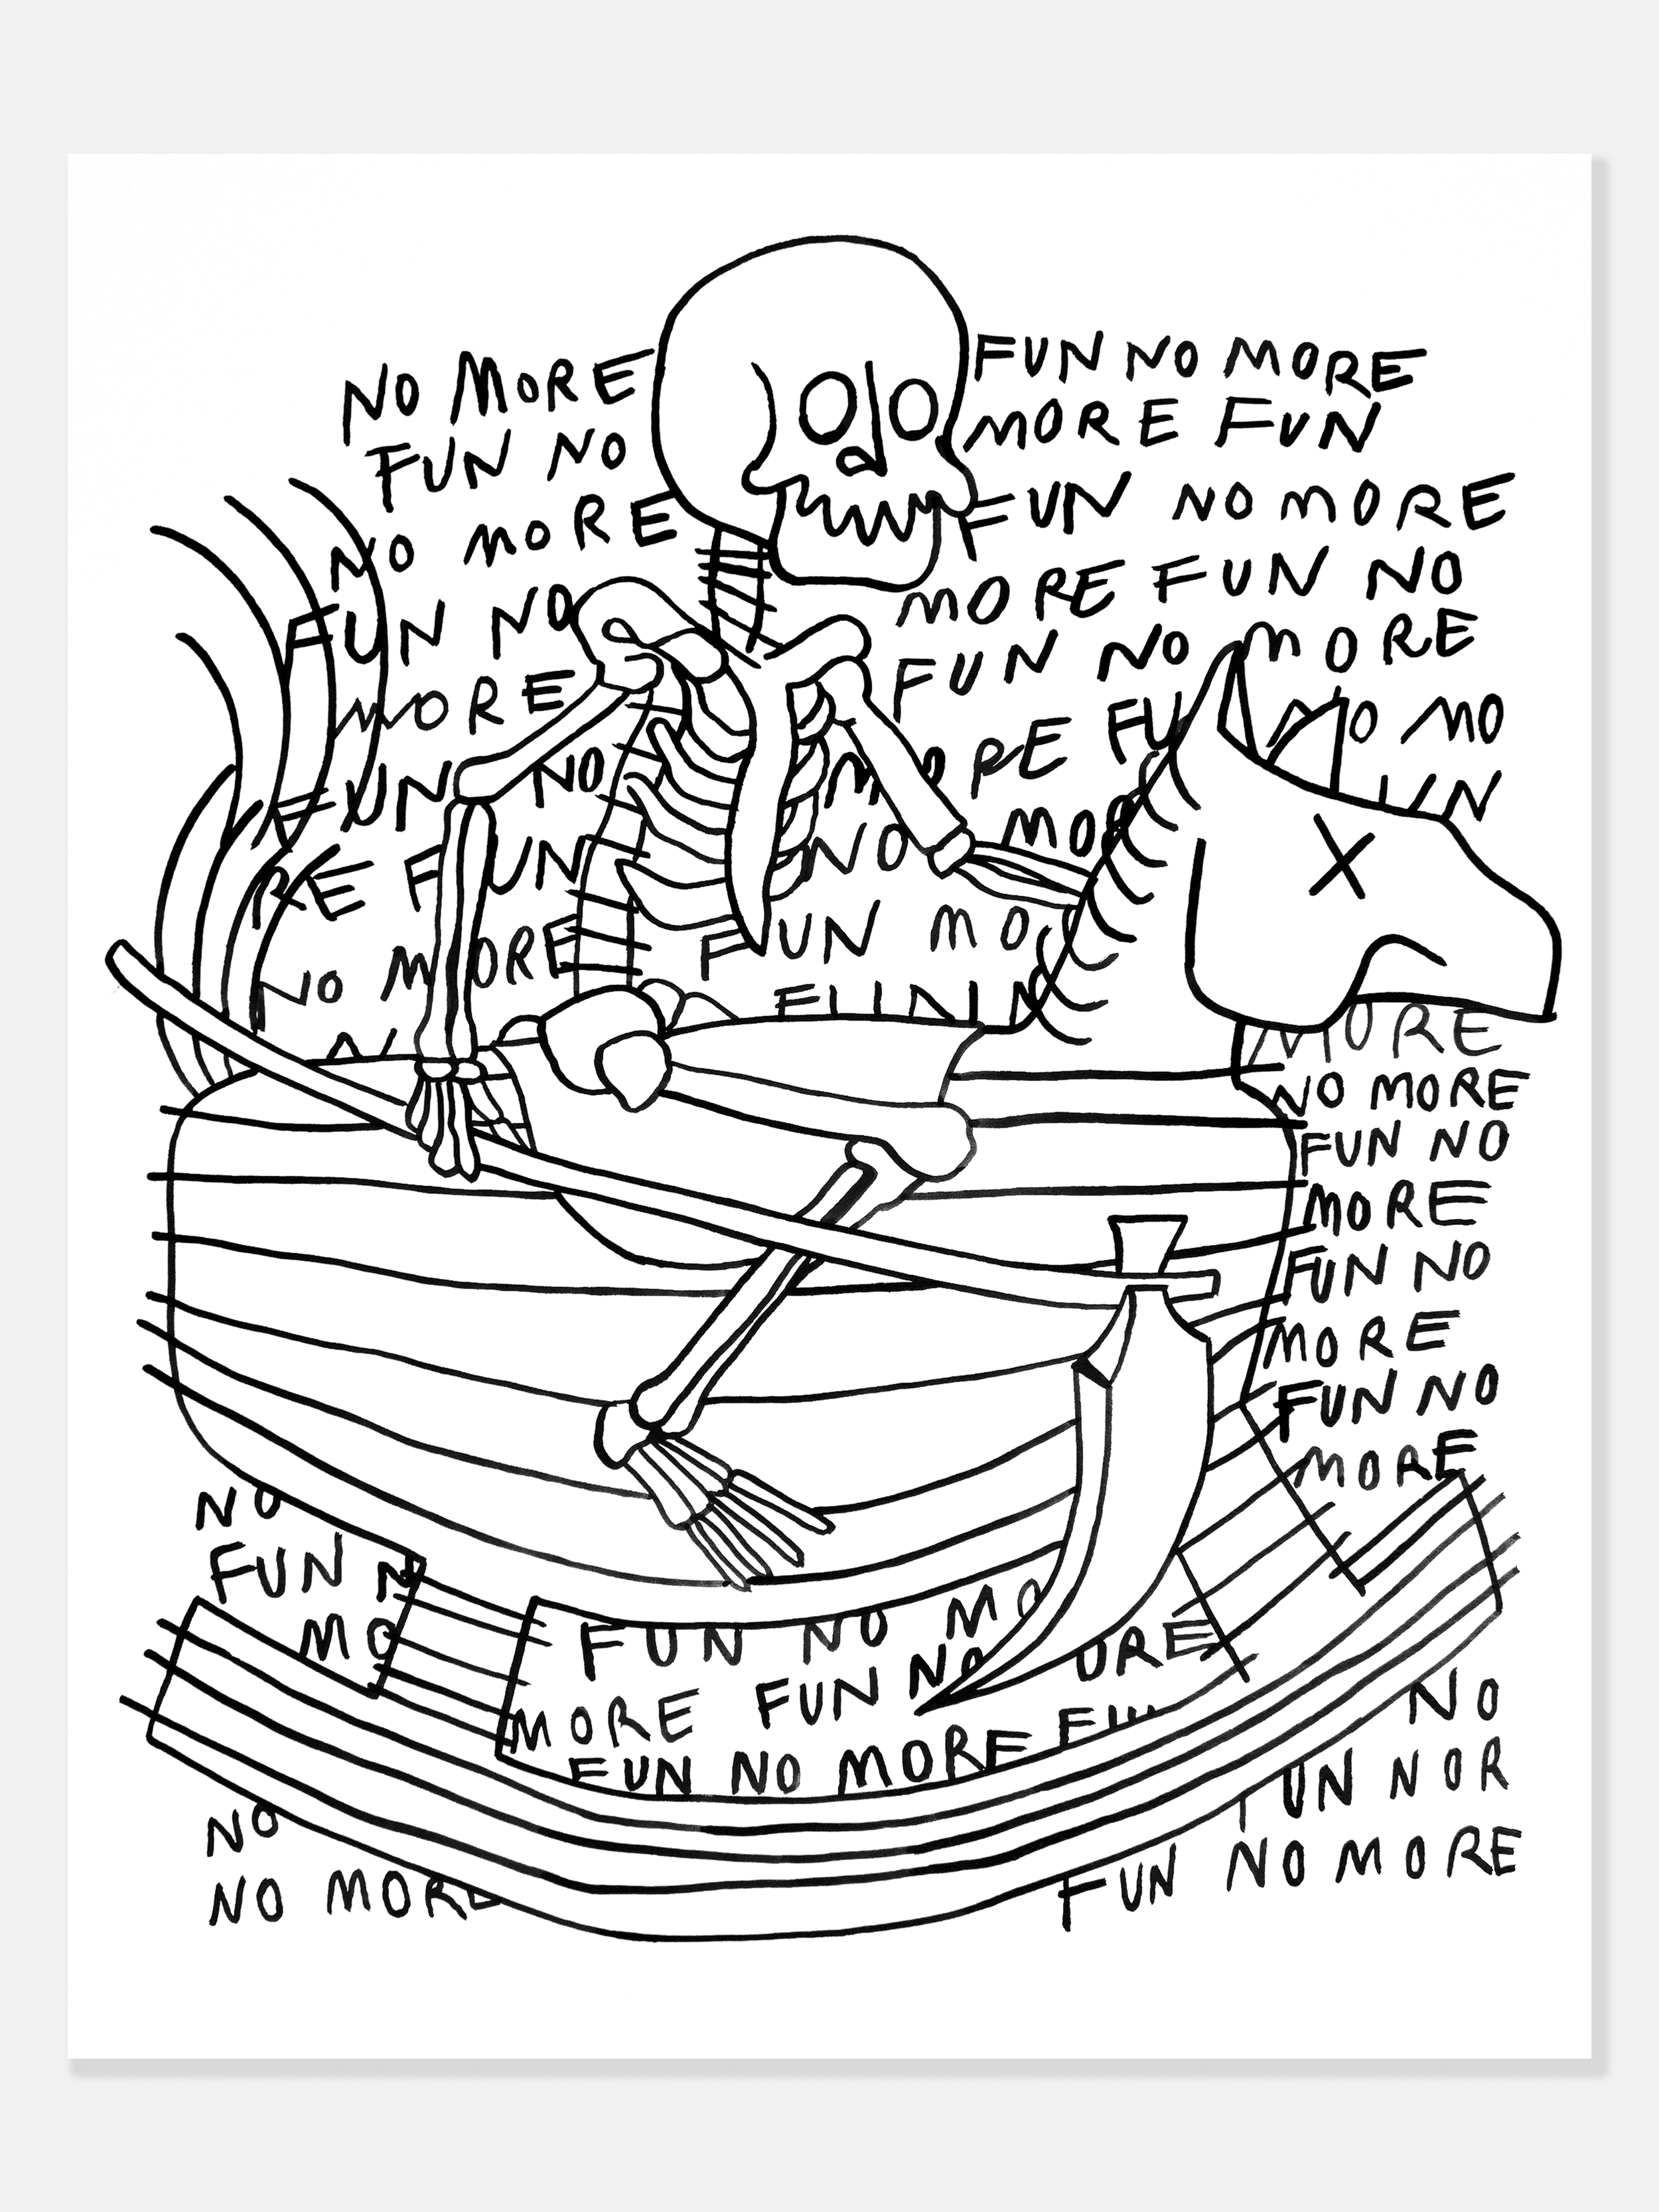 NO MORE
FUN NO MORE
FUN NO
MORE FUN
NO MORE
FUN NO MORE
FUN NO
MORE FUN NO
MORE
FUN NO MORE
FUN NO
MORE FU
NO MO
RE FUN
NO
MO
UN
NO MORE
FUN MO
MORE
NO MORE
FUN NO
MORE
FUN NO
MORE
FUN NO
MORE
NO
FUN N
MO
FUN NO MO
MORE FUN NO
ORE
FUN NO MORE
NO
UN NOR
NO
NO MORE
FUN NO MORE